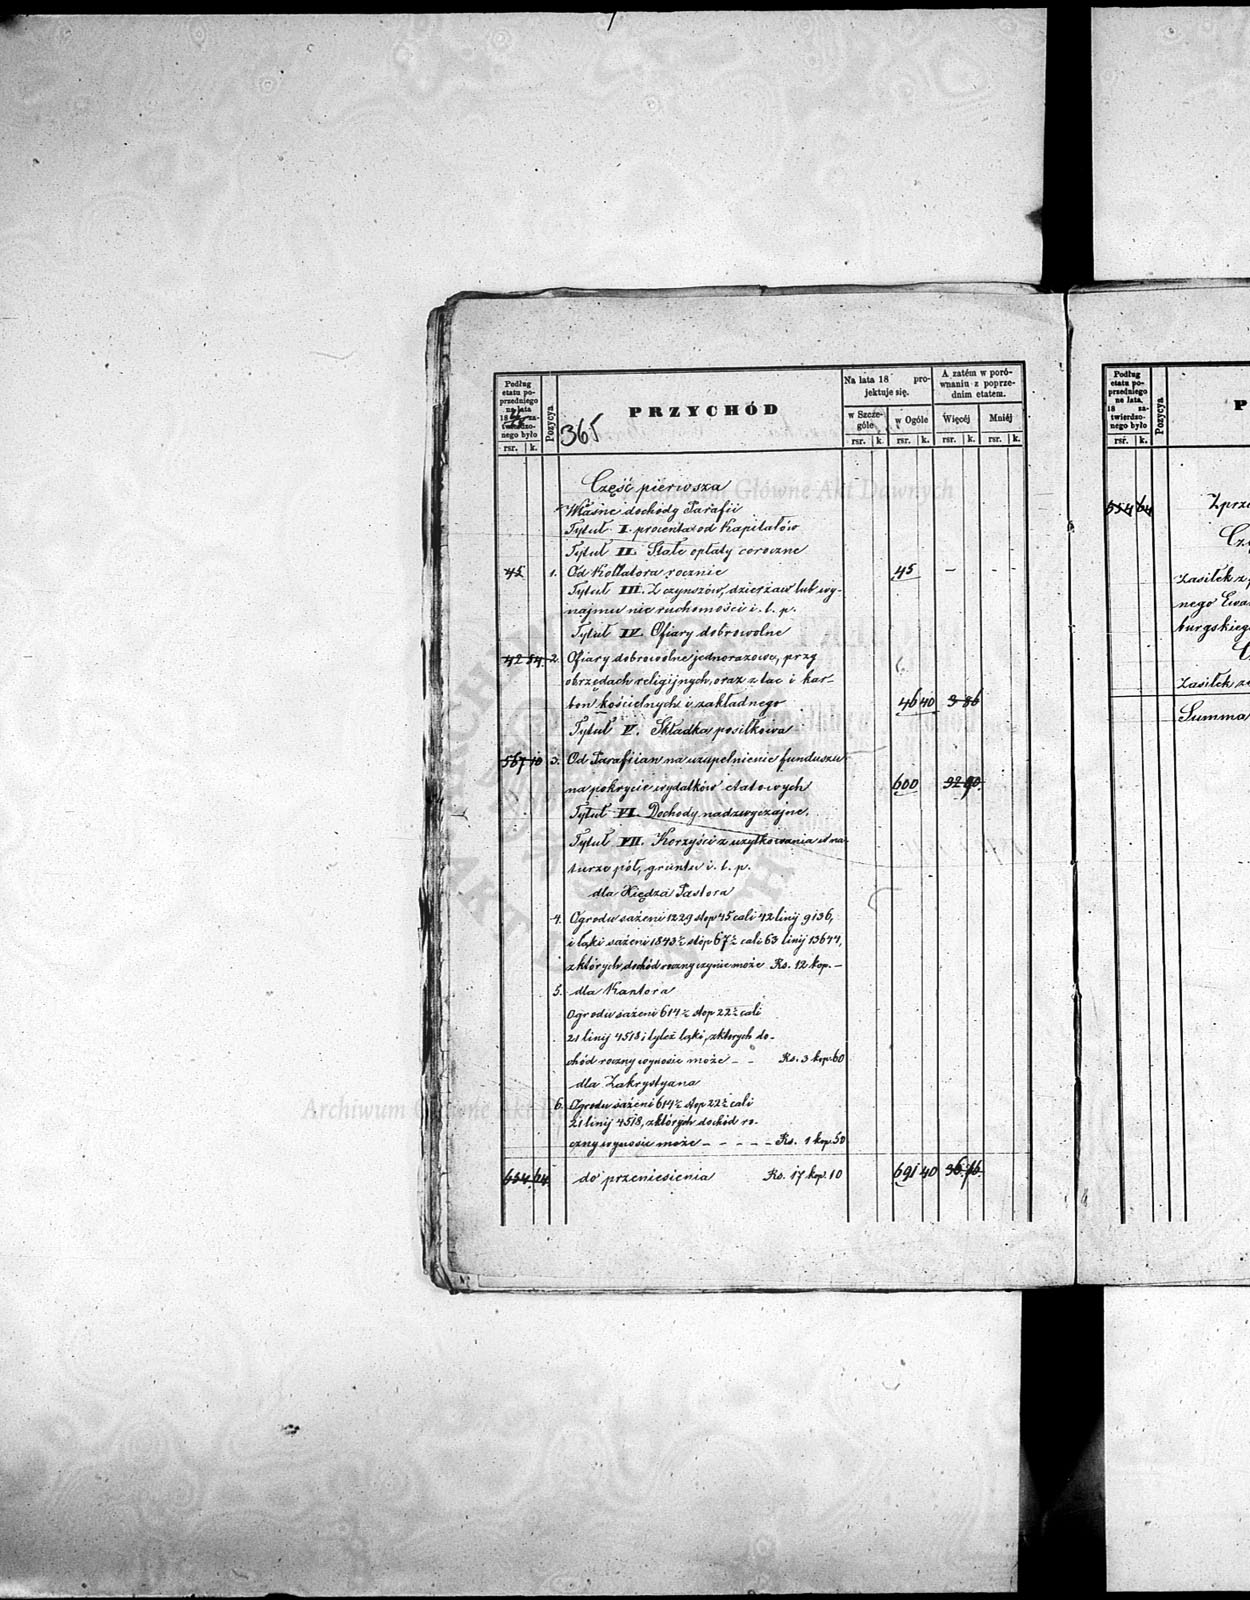 Podług etatu poprzedniego na lata 18 zatwierdzonego było
rsr. k.
Pozycya
PRZYCHÓD
365
Na lata 18 projektuje się.
w Szczególe
w Ogóle
rsr. k.
rsr. k.
A zatém w porównaniu z poprzednim etatem.
Więcéj
Mniéj
rsr. k.
rsr. k.
Część pierwsza
Własne dochody Parafii
Tytuł I. procenta od Kapitałów
Tytuł II. Stałe opłaty coroczne
45 1. Od Kollatora rocznie 45 – –
Tytuł III. Z czynszów, dzierżaw lub wy-
najmu nieruchomości i. t. p.
Tytuł IV. Ofiary dobrowolne
42 54 2. Ofiary dobrowolne jednorazowe, przy
obrzędach religijnych, oraz z tac i kar-
bon kościelnych i zakładnego 46 40 3 86
Tytuł V. Składka posiłkowa
567 10 3. Od Parafian na uzupełnienie funduszu
na pokrycie wydatków etatowych 600 32 90
Tytuł VI. Dochody nadzwyczajne.
Tytuł VII. Korzyści z użytkowania w na-
turze pól, gruntu i. t. p.
dla Księdza Pastora
4. Ogrodu sążeni 1229 stop 45 cali 42 linij 9136,
i łąki sążeni 1843½ stóp 67½ cali 63 linij 13644,
z których dochód roczny czynić może Rs. 12 kop. –
5. dla Kantora
Ogrodu sążeni 614½ stop 22½ cali
21 linij 4518 i tyleż łąki, z których do-
chód roczny wynosić może – – Rs. 3 kop. 60
dla Zakrystyana
6. Ogrodu sążeni 614½ stop 22½ cali
21 linij 4518, z których dochód ro-
czny wynosić może – – – – – Rs. 1 kop. 50
654 64 do przeniesienia Rs. 17 kop. 10 691 40 36 76
Podług etatu poprzedniego na lata. 18 zatwierdzonego było
rsr. k.
Pozycya
P
654 64
Z prze
Czę
Zasiłek z
nego Ewa
burgskieg
Zasiłek z
Summa
Archiwum Główne Akt Dawnych
Archiwum Główne Akt